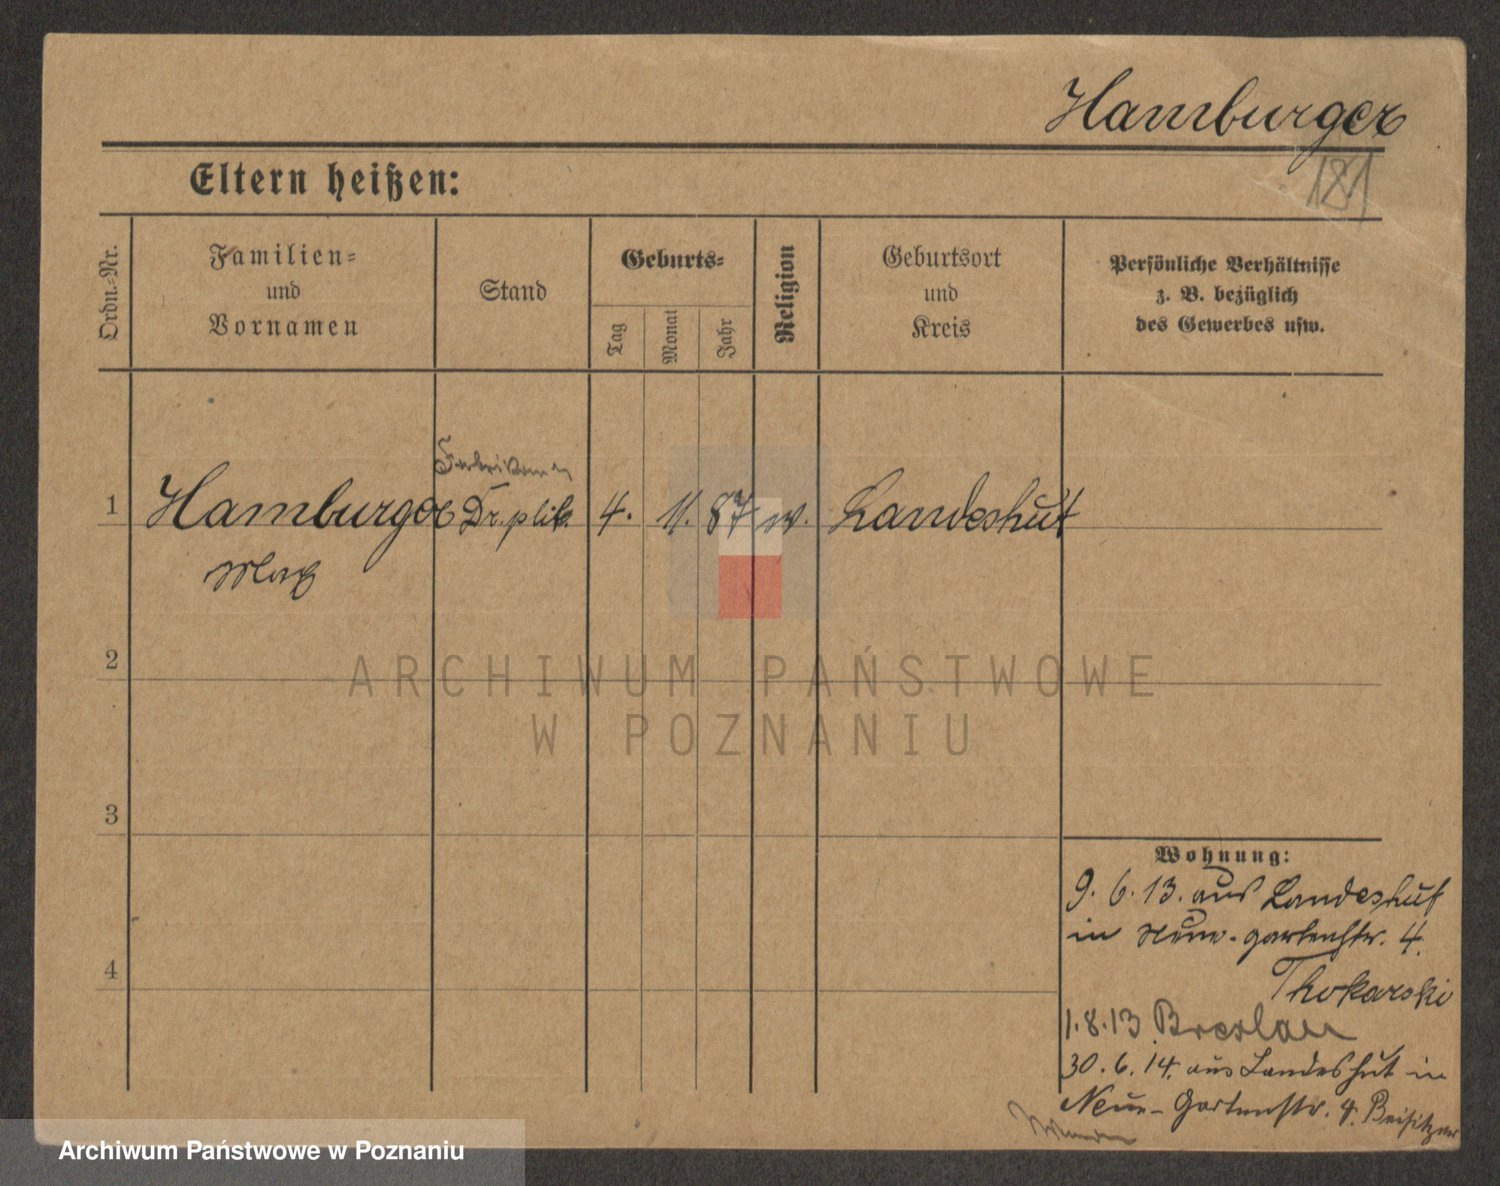 Hamburger
181
Eltern heißen:
Ordn.-Nr.
Familien-
und
Vornamen
Stand
Geburts-
Tag
Monat
Jahr
Religion
Geburtsort
und
Kreis
Persönliche Verhältnisse
z. B. bezüglich
des Gewerbes usw.
1
Hamburger
Max
Dr. phil.
4.
11.
87
Landeshut
2
3
4
ARCHIWUM PAŃSTWOWE
W POZNANIU
Wohnung:
9. 6. 13. aus Landeshut
in Neue-gartenstr. 4.
Thokarski
1.8.13 Breslau
30. 6. 14. aus Landeshut in
Neue-Gartenstr. 4. Beisitzer
Archiwum Państwowe w Poznaniu